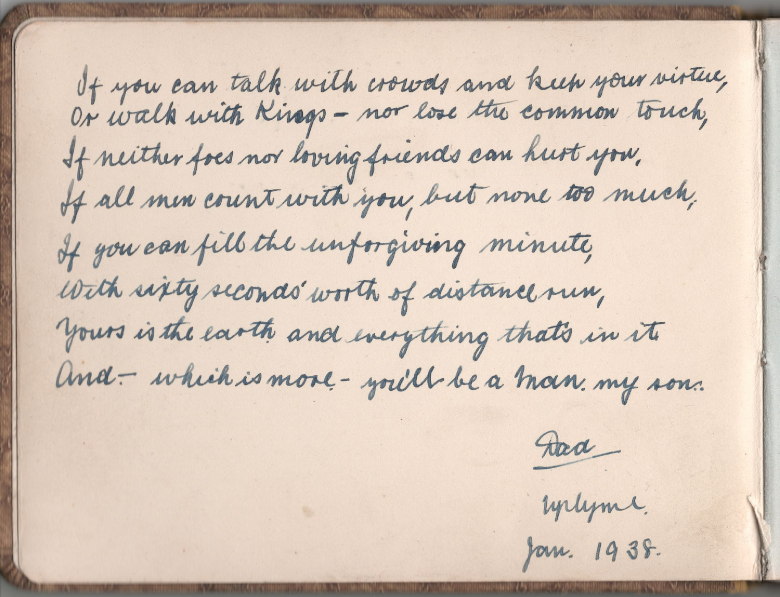 If you can talk with crowds and keep your virtue,
Or walk with Kings – nor lose the common touch,
If neither foes nor loving friends can hurt you,
If all men count with you, but none too much,
If you can fill the unforgiving minute,
With sixty seconds' worth of distance run,
Yours is the earth and everything that's in it
And – which is more – you'll be a Man. my son.
Dad
Uplyme.
Jan. 1938.